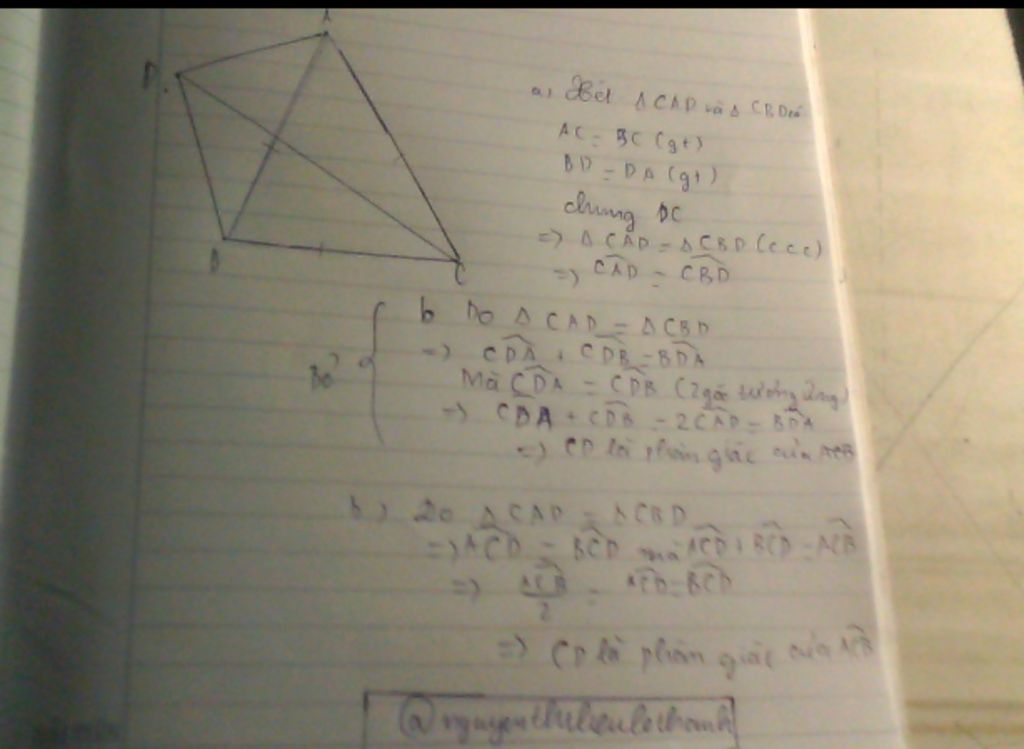 A
D
B
C
a, Xét Δ CAD và Δ CBD có
AC = BC (gt)
BD = DA (gt)
chung DC
=> Δ CAD = Δ CBD (c c c)
=> CAD = CBD
Bỏ
b Do Δ CAD = Δ CBD
=> CDA + CDB = BDA
Mà CDA = CDB (2 góc tương ứng)
=> CDA + CDB = 2CAD = BDA
=> CD là phân giác của ACB
b) Do Δ CAD = Δ CBD
=> ACD = BCD mà ACD + BCD = ACB
=> ACB/2 = ACD = BCD
=> CD là phân giác của ACB